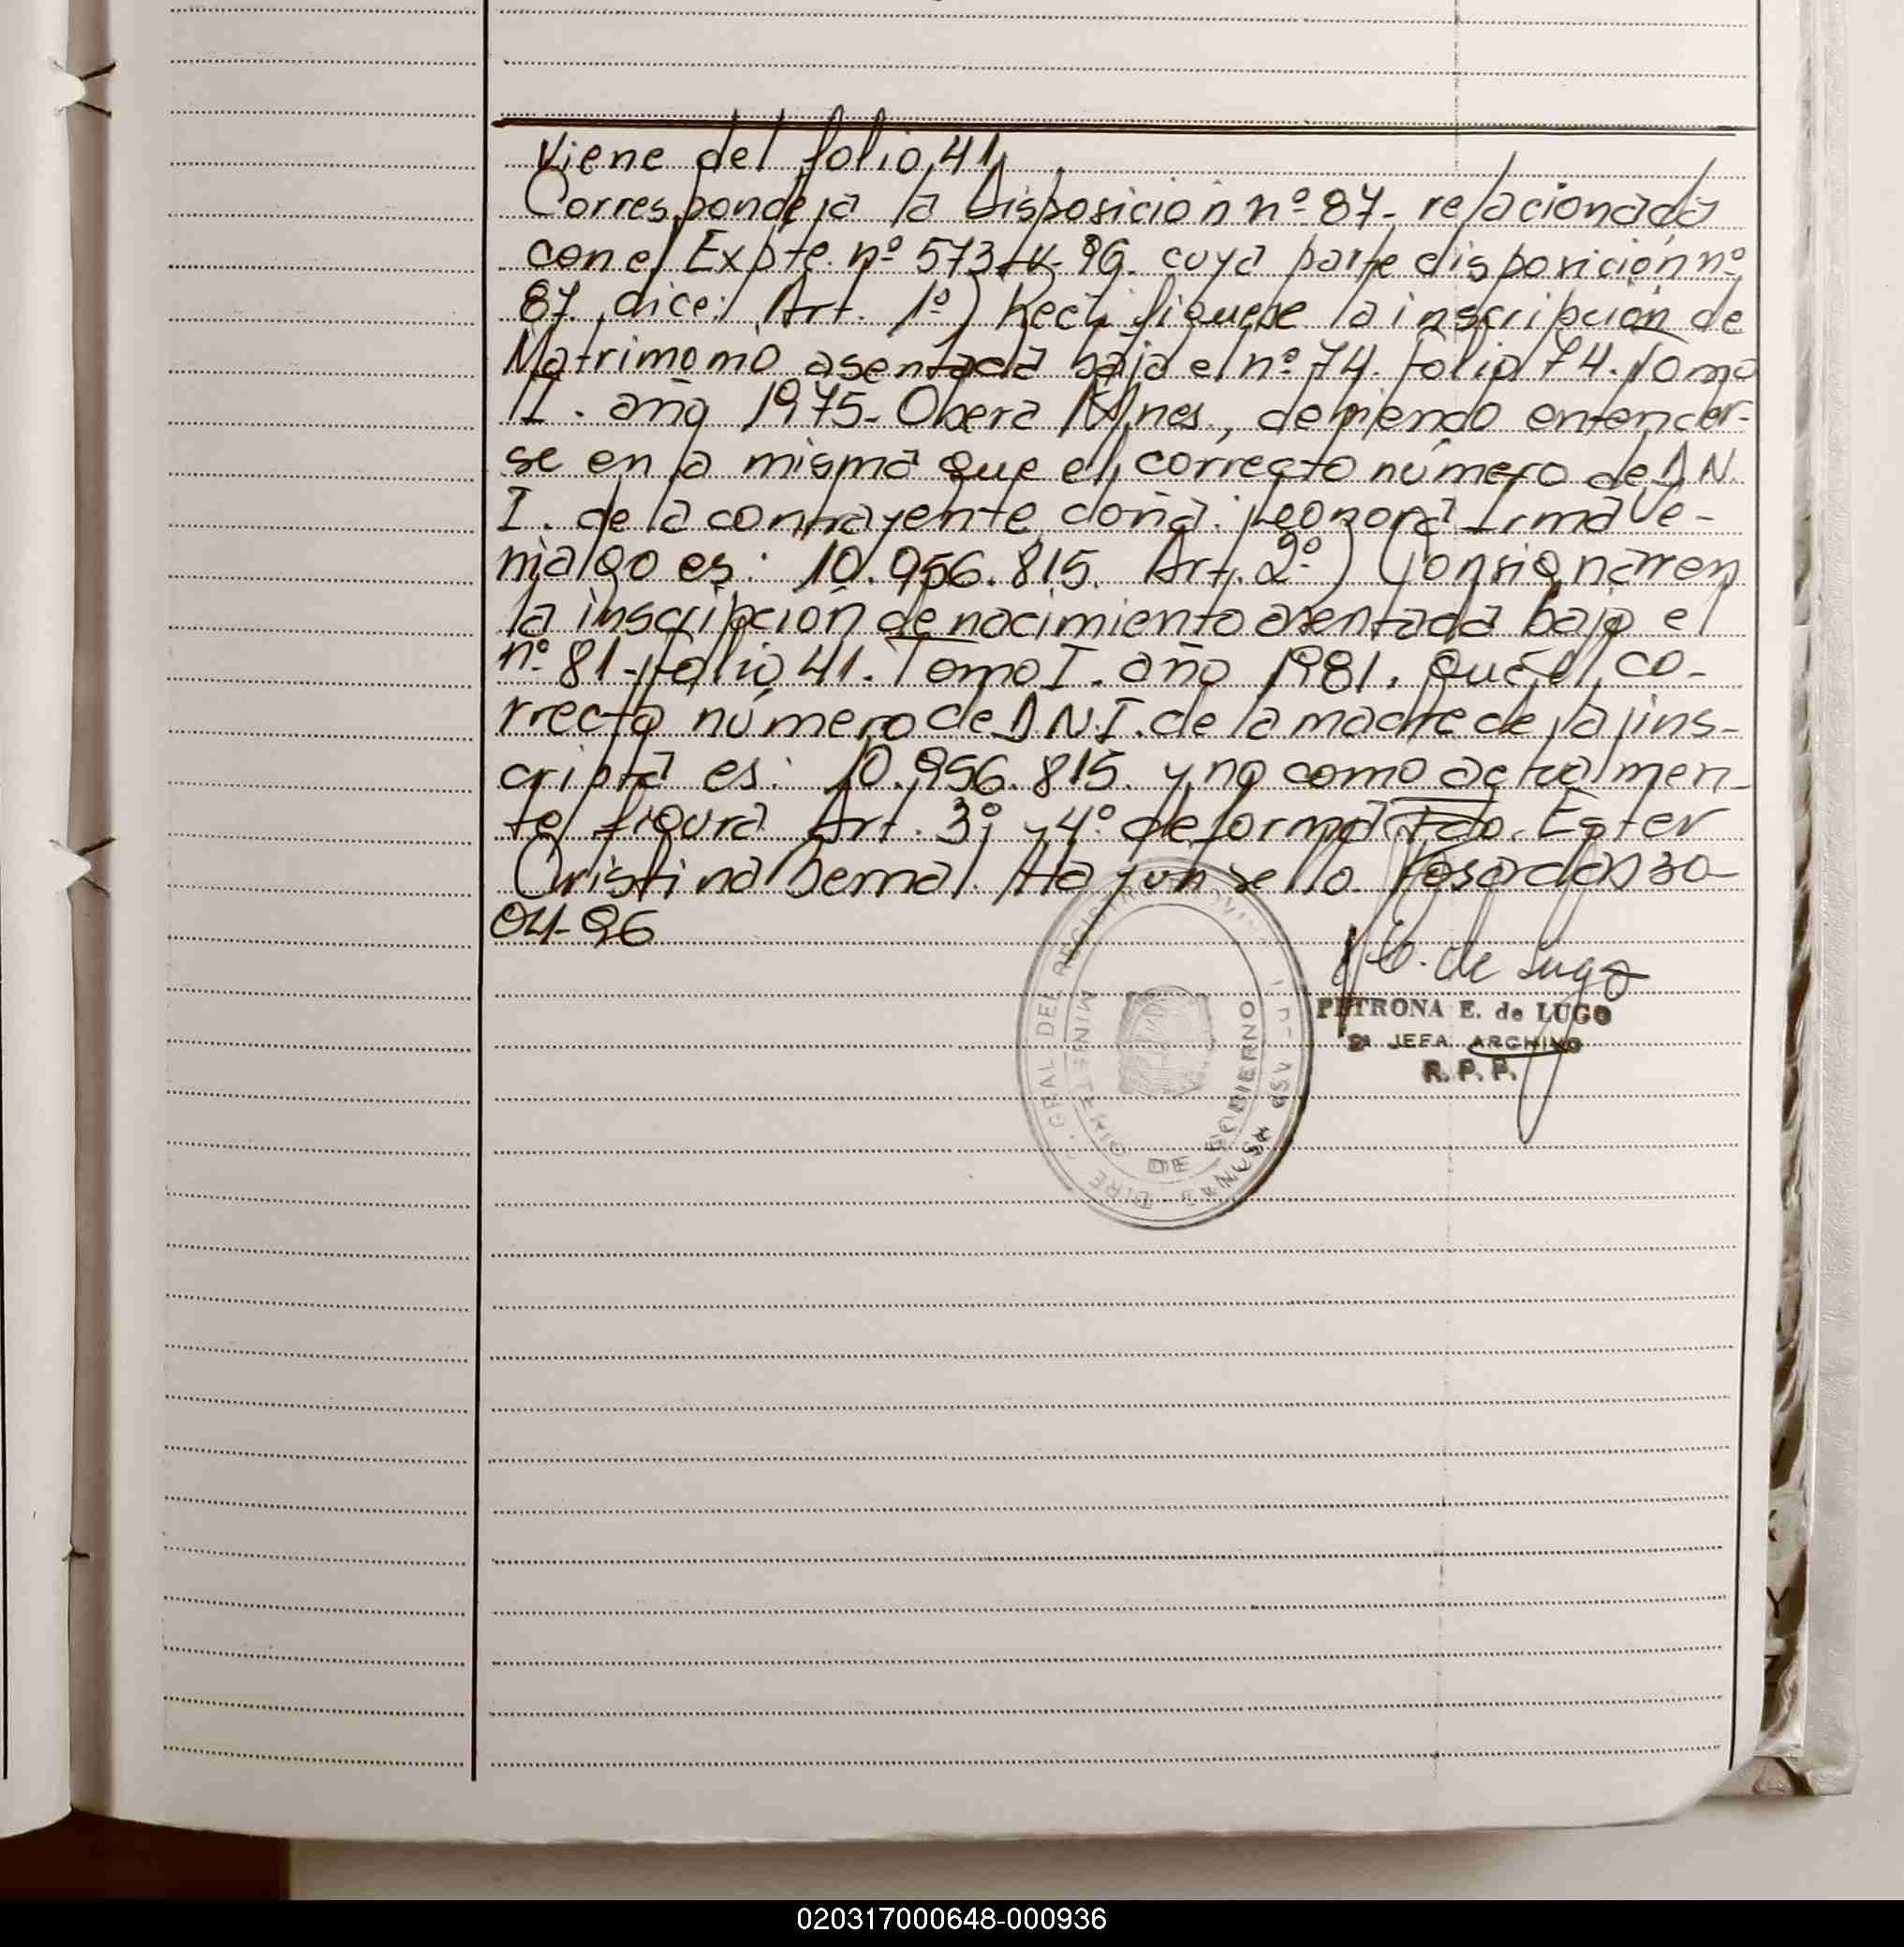 Viene del folio 41
Corresponde a la Disposición nº 87- relacionada
con el Expte. nº 573- -96. cuya parte disposición nº
87. dice: Art. 1º) Rectifiquese la inscripción de
Matrimonio asentada bajo el nº 74. folio 74. Tomo
II. año 1975- Obera Mnes., debiendo entender-
se en la misma que el correcto número de D.N.
I. de la contrayente doña: Leonora Irma Ve-
nialgo es: 10.956.815. Art. 2º) Consignar en
la inscripción de nacimiento asentada bajo el
nº 81- folio 41. Tomo I. año 1981. que el co-
rrecto número de D.N.I. de la madre de la ins-
cripta es: 10.956.815. y no como actualmen-
te figura Art. 3º y 4º de forma Fdo. Ester
Cristina Bernal. Hay un sello. Posadas 30-
04-96
E. de Lugo
PETRONA E. de LUGO
JEFA ARCHIVO
R. P. P.
GRAL DEL REGISTRO
MINISTERIO DE GOBIERNO
020317000648-000936